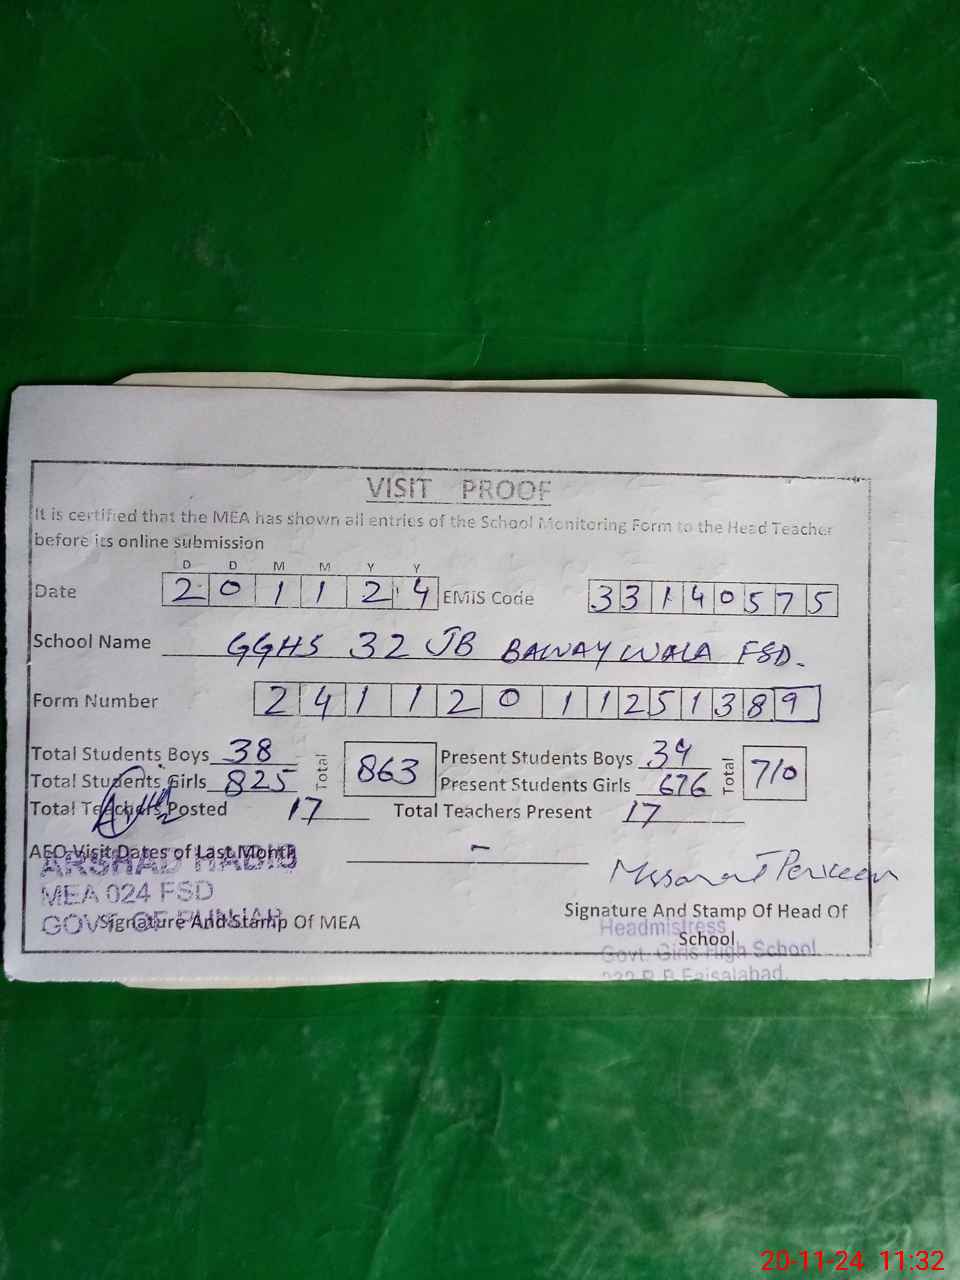 VISIT PROOF
It is certified that the MEA has shown all entries of the School Monitoring Form to the Head Teacher
before its online submission
D D M M Y Y
Date 2 0 1 1 2 4 EMIS Code 3 3 1 4 0 5 7 5
School Name GGHS 32 JB BAWAY WALA FSD.
Form Number 2 4 1 1 2 0 1 1 2 5 1 3 8 9
Total Students Boys 38 Total 863 Present Students Boys 34 Total 710
Total Students Girls 825 Present Students Girls 676
Total Teachers Posted 17 Total Teachers Present 17
AEO Visit Dates of Last Month -
ARSHAD HABIB
MEA 024 FSD
GOVT. OF PUNJAB
Signature And Stamp Of MEA
Mussarat Perveen
Signature And Stamp Of Head Of
School
Headmistress
Govt. Girls High School
Faisalabad.
20-11-24 11:32